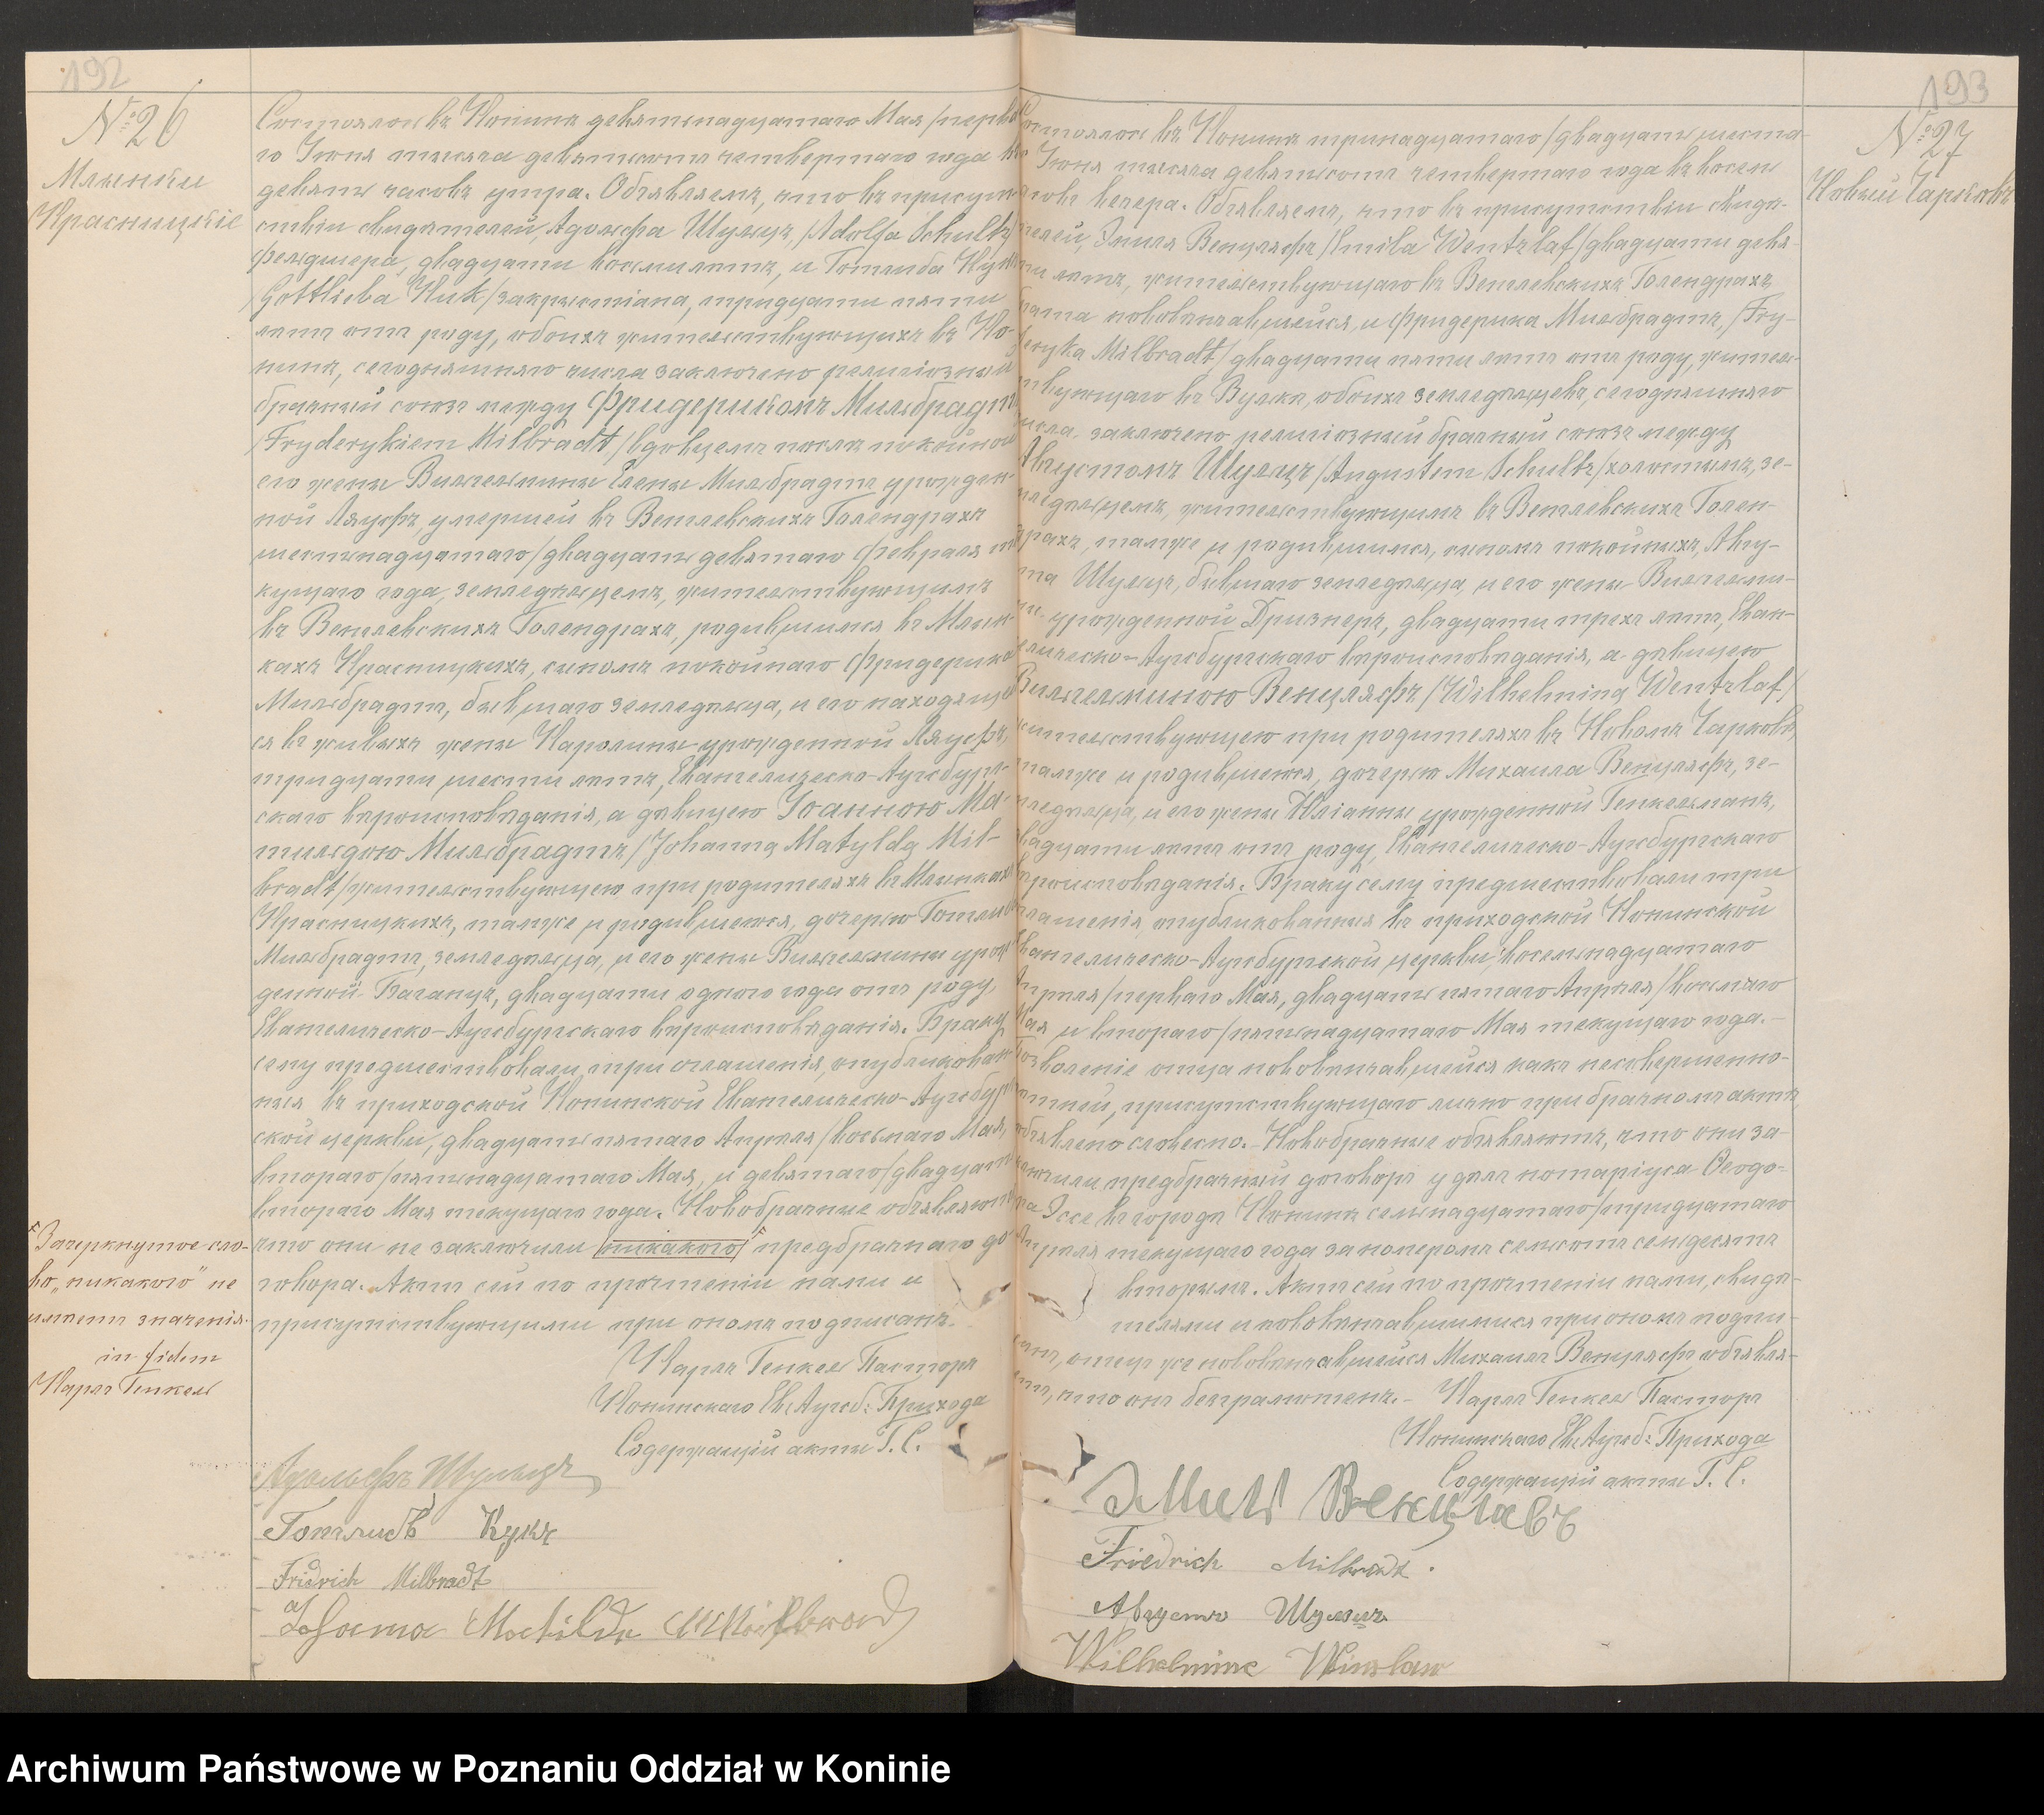 192
№ 26
Млынки
Красницкіе
Состоялось въ Конинѣ девятнадцатаго Мая /перва
го Іюня тысяча девятьсотъ четвертаго года въ
девять часовъ утра. Объявляемъ, что въ присут
ствіи свидѣтелей, Адольфа Шульцъ, /Adolfa Schultz/
фельдшера, двадцати восьми лѣтъ, и Готлиба Кукъ
/Gottlieba Kuk/ закрыстіана, тридцати пяти
лѣтъ отъ роду, обоихъ жительствующихъ въ Ко-
нинѣ, сегодняшняго числа заключено религіозный
брачный союзъ между Фридерикомъ Мильбрадтъ
/Fryderykiem Milbradt/ вдовцемъ послѣ покойной
его жены Вильгельмины Елены Мильбрадтъ урожден-
ной Ляуфъ, умершей въ Велевскихъ Голендрахъ
шестнадцатаго/двадцать девятаго Февраля те
кущаго года, земледѣльцемъ, жительствующимъ
въ Голендрахъ, родившимся въ Млын-
кахъ Красницкихъ, сыномъ покойнаго Фридерика
Мильбрадтъ, бывшаго земледѣльца, и его находящей
ся въ живыхъ жены Каролины урожденной Ляуфъ,
тридцати шести лѣтъ, Евангелическо-Аугсбург-
скаго вѣроисповѣданія, а дѣвицею Іоанною Ма-
тильдою Мильбрадтъ /Johanną Matyldą Mil-
bradt/ жительствующею при родителяхъ въ Млынкахъ
Красницкихъ, тамже и родившеюся, дочерью Готлиба
Мильбрадтъ, земледѣльца, и его жены Вильгельмины урож
денной Баганцъ, двадцати одного года отъ роду,
Евангелическо-Аугсбургскаго вѣроисповѣданія. Браку
сему предшествовали три оглашенія, опубликован
ныя въ приходской Конинской Евангелическо-Аугсбург
ской церкви, двадцать пятаго Апрѣля /восьмаго Мая,
втораго/пятнадцатаго Мая, и девятаго/двадцать
втораго Мая текущаго года. Новобрачные объявляютъ
что они не заключили никакого предбрачнаго до
говора. Актъ сей по прочтеніи нами и
присутствующими при ономъ подписанъ.
Карлъ Генкель Пасторъ
Конинскаго Ев: Аугсб: Прихода
Содержащій акты Г. С.
Зачеркнутое сло-
во „никакого" не
имѣетъ значенія.
in fidem
Карлъ Генкель
Адольфъ Шульцъ
Готлибъ Кукъ
Fridrich Milbradt
Johanna Matilda Milbrad
193
№ 27
Новый Чарковъ
Состоялось въ Конинѣ тринадцатаго/двадцать шеста-
го Іюня тысяча девятьсотъ четвертаго года въ восемь
часовъ вечера. Объявляемъ, что въ присутствіи свидѣ-
телей, Эмиля Венцляфъ /Emila Wentzlaf/ двадцати девя-
ти лѣтъ, жительствующаго въ Голендрахъ,
брата новобрачавшейся, и Фридерика Мильбрадтъ, /Fry-
deryka Milbradt/ двадцати пяти лѣтъ отъ роду, житель-
ствующаго въ Вулькѣ, обоихъ земледѣльцевъ, сегодняшняго
числа, заключено религіозный брачный союзъ между
Августомъ Шульцъ /Augustem Schultz/ холостымъ, зе-
мледѣльцемъ, жительствующимъ въ Голен-
драхъ, тамже и родившимся, сыномъ покойныхъ, Авгу-
ста Шульцъ, бывшаго земледѣльца, и его жены Вильгельми-
ны урожденной Дризнеръ, двадцати трехъ лѣтъ, Еван-
гелическо-Аугсбургскаго вѣроисповѣданія, а дѣвицею
Вильгельминою Венцляфъ /Wilhelminą Wentzlaf/
жительствующею при родителяхъ въ Новомъ Чарковѣ,
тамже и родившеюся, дочерью Михаила Венцляфъ, зе-
мледѣльца, и его жены Юліанны урожденной Генкельманъ,
двадцати лѣтъ отъ роду, Евангелическо-Аугсбургскаго
вѣроисповѣданія. Браку сему предшествовали три
оглашенія, опубликованныя въ приходской Конинской
Евангелическо-Аугсбургской церкви, восемнадцатаго
Апрѣля/перваго Мая, двадцать пятаго Апрѣля/восьмаго
Мая и втораго/пятнадцатаго Мая текущаго года.-
Позволеніе отца нововѣнчавшейся какъ несовершенно-
лѣтней, присутствующаго лично при брачномъ актѣ,
объявлено словесно.- Новобрачные объявляютъ, что они за-
ключили предбрачный договоръ у дѣлъ нотаріуса Ѳеодо-
ра Эссе въ городѣ Конинѣ семнадцатаго/тридцатаго
Апрѣля текущаго года за номеромъ семьсотъ семьдесятъ
вторымъ. Актъ сей по прочтеніи нами, свидѣ-
телями и нововѣнчавшимися при ономъ подпи-
санъ, отецъ же нововѣнчавшейся Михаилъ Венцляфъ объявля-
етъ, что онъ безграмотенъ.- Карлъ Генкель Пасторъ
Конинскаго Ев: Аугсб: Прихода
Содержащій акты Г. С.
Эмиль Венцлавъ
Friedrich Milbradt.
Августъ Шульцъ
Wilhelmine Winslaw
Archiwum Państwowe w Poznaniu Oddział w Koninie